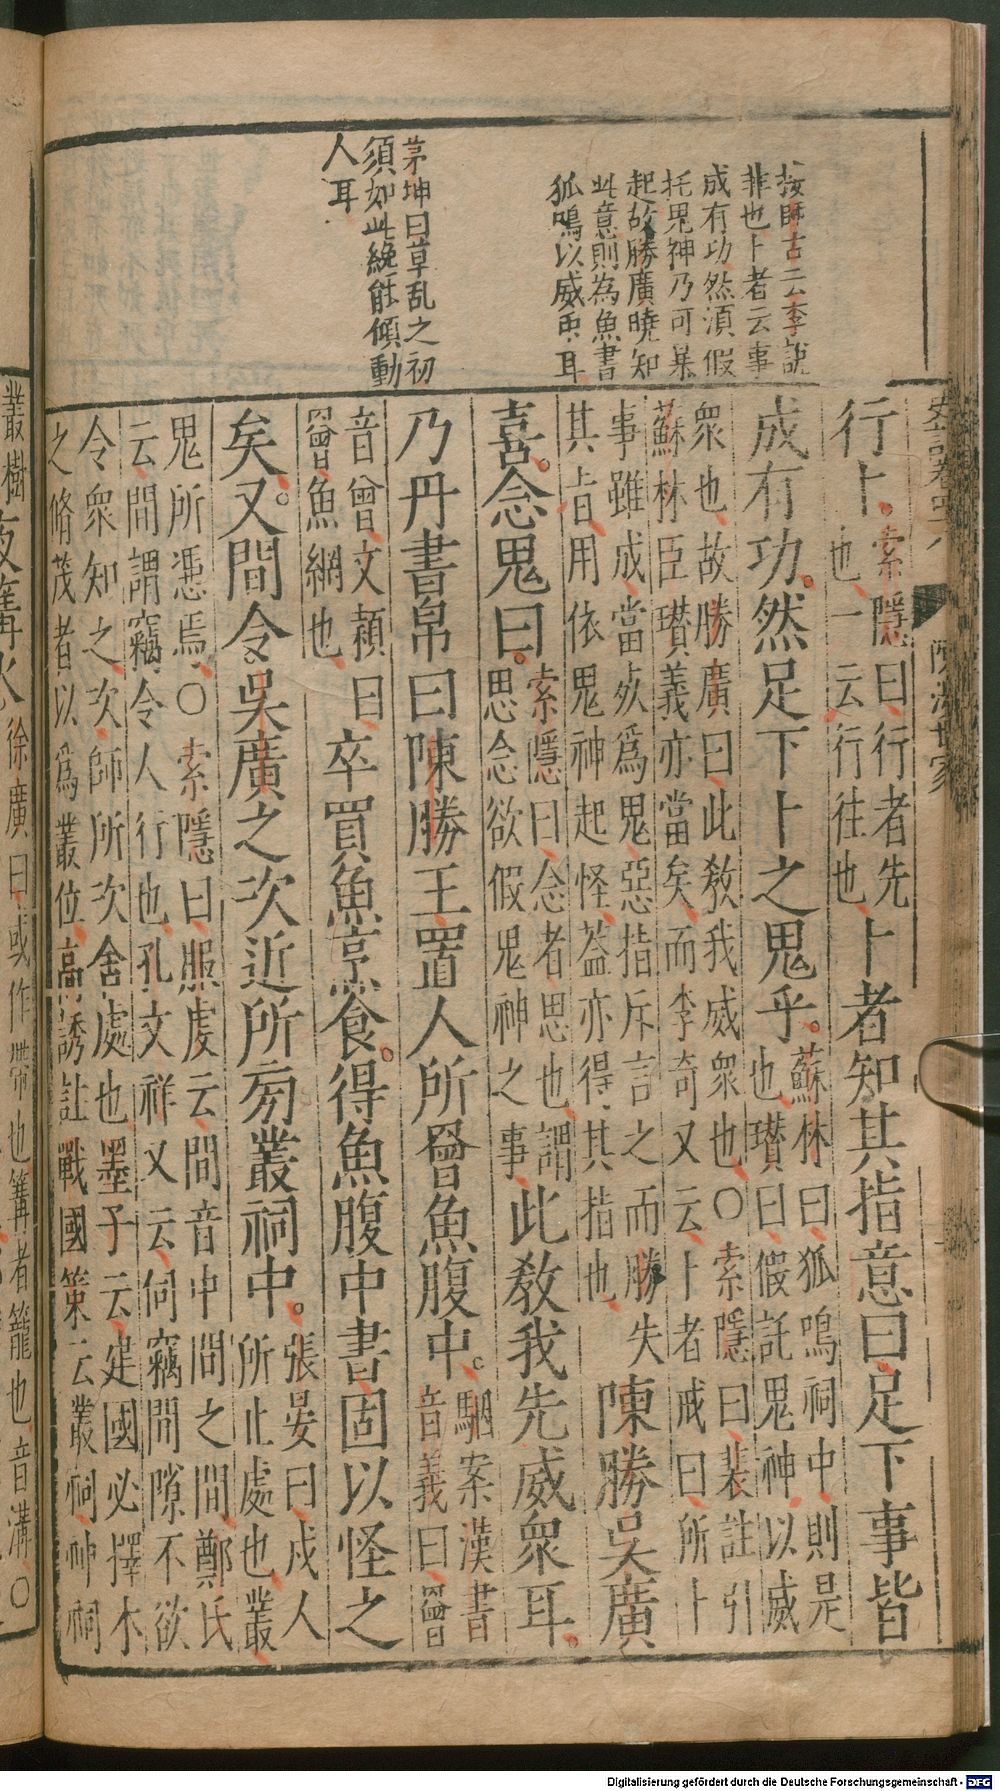 按師古云李說
非也卜者云事
成有功然湏假
托鬼神乃可暴
起故勝廣曉知
此意則為魚書
狐鳴以威衆耳
茅坤曰草乱之初
須如此纔能傾動
人耳
史記卷四十八
陳涉世家
行卜
索隱曰行者先
也一云行往也
卜者知其指意曰足下事皆
成有功然足下卜之鬼乎
蘇林曰狐鳴祠中則是
也瓚曰假託鬼神以威
衆也故勝廣曰此敎我威衆也○索隱曰裴註引
蘇林臣瓚義亦當矣而李奇又云卜者戒曰所卜
事雖成當死爲鬼惡指斥言之而勝失
其旨用依鬼神起怪葢亦得其指也
陳勝吳廣
喜念鬼曰
索隱曰念者思也謂
思念欲假鬼神之事
此敎我先威衆耳
乃丹書帛曰陳勝王置人所罾魚腹中
駰案漢書
音義曰罾
音曾文穎曰
罾魚網也
卒買魚烹食得魚腹中書固以怪之
矣又間令吳廣之次近所旁叢祠中
張晏曰戍人
所止處也叢
鬼所憑焉○索隱曰服虔云間音中間之間鄭氏
云間謂竊令人行也孔文祥又云伺竊間隙不欲
令衆知之次師所次舍處也墨子云建國必擇木
之脩茂者以爲叢位高誘註戰國策云叢祠神祠
叢樹
夜篝火
徐廣曰或作帶也篝者籠也音溝○
Digitalisierung gefördert durch die Deutsche Forschungsgemeinschaft - DFG